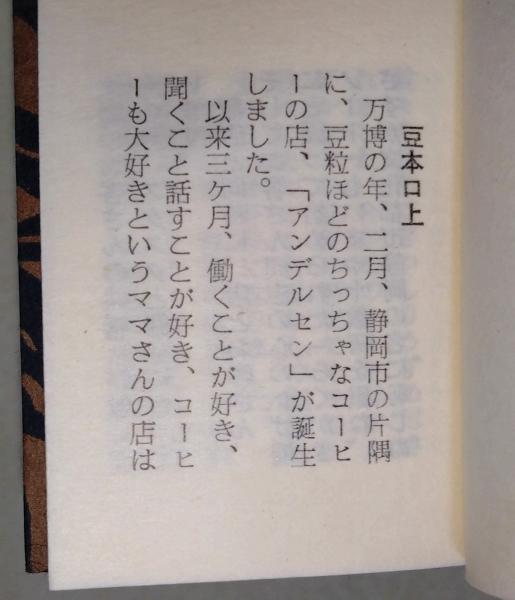 豆本口上
万博の年、二月、静岡市の片隅
に、豆粒ほどのちっちゃなコーヒ
ーの店、「アンデルセン」が誕生
しました。
以来三ケ月、働くことが好き、
聞くこと話すことが好き、コーヒ
ーも大好きというママさんの店は